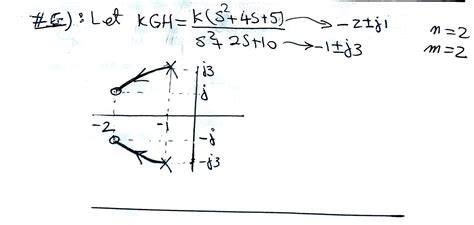 : Let KGH = K(S²+4S+5) → -2±j1
S²+2S+10 → -1±j3
n=2
m=2
j3
j
-2
-1
-j
-j3